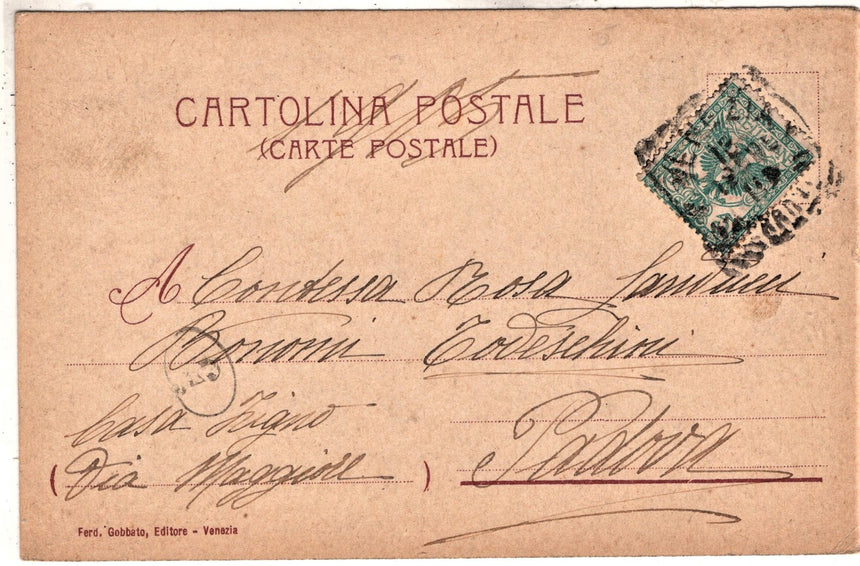 1905
CARTOLINA POSTALE
(CARTE POSTALE)
VENEZIA
12
A Contessa Rosa
Bonomi Todeschini
Casa Zigno
(Via Maggiore)
Padova
Ferd. Gobbato, Editore - Venezia